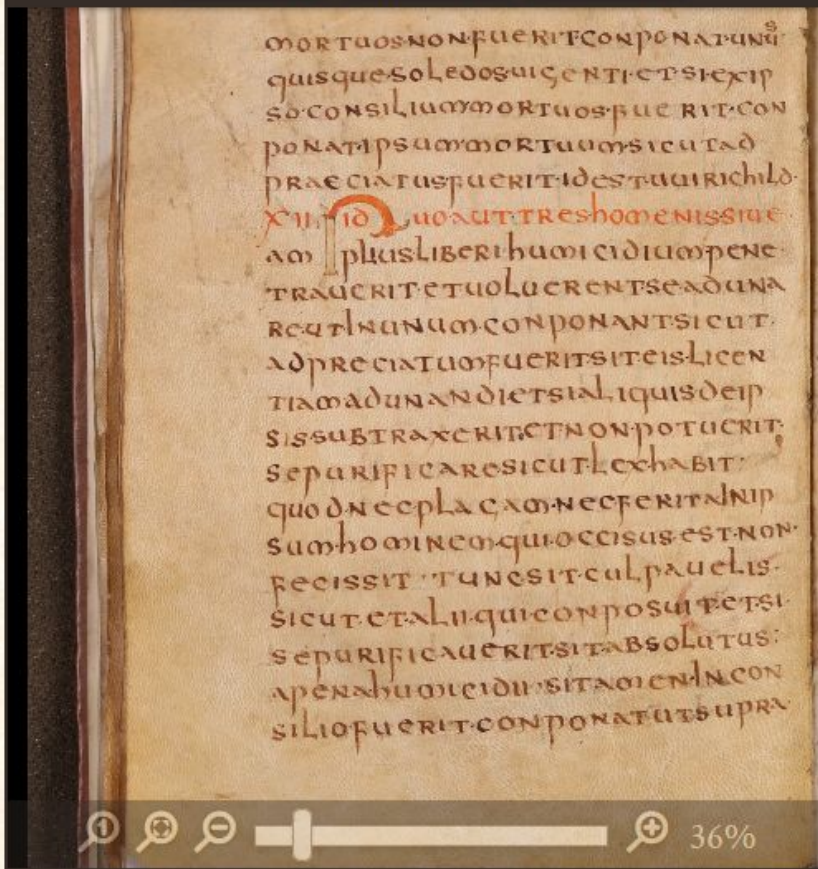 mortuos·non·fuerit conponat·unusquisque·soledos·uigenti·et·si·exip
so·consilium mortuos·fuerit·con
ponat·ipsum mortuum·sicut ad
praeciatus fuerit·id est·uuirichild·
XII· Si duo aut·tres homenis siue
am plius liberi humicidium pene
trauerit·et uoluerent se aduna
re·ut In unum·conponant sicut·
ad preciatum fuerit sit eis·licen
tiam adunandi et si aliquis de ip
sis subtraxerit·et non·potuerit·
se purificare sicut lex habit·
quod nec plagam·nec ferita In ip
sum·hominem·qui·occisus est·non·
fecissit· tunc sit·culpauelis·
sicut·et alii·qui conposuit·et si·
se purificauerit sit absolutus:
a pena humicidii· sit amen·In con
silio fuerit·conponat ut supra·
36%